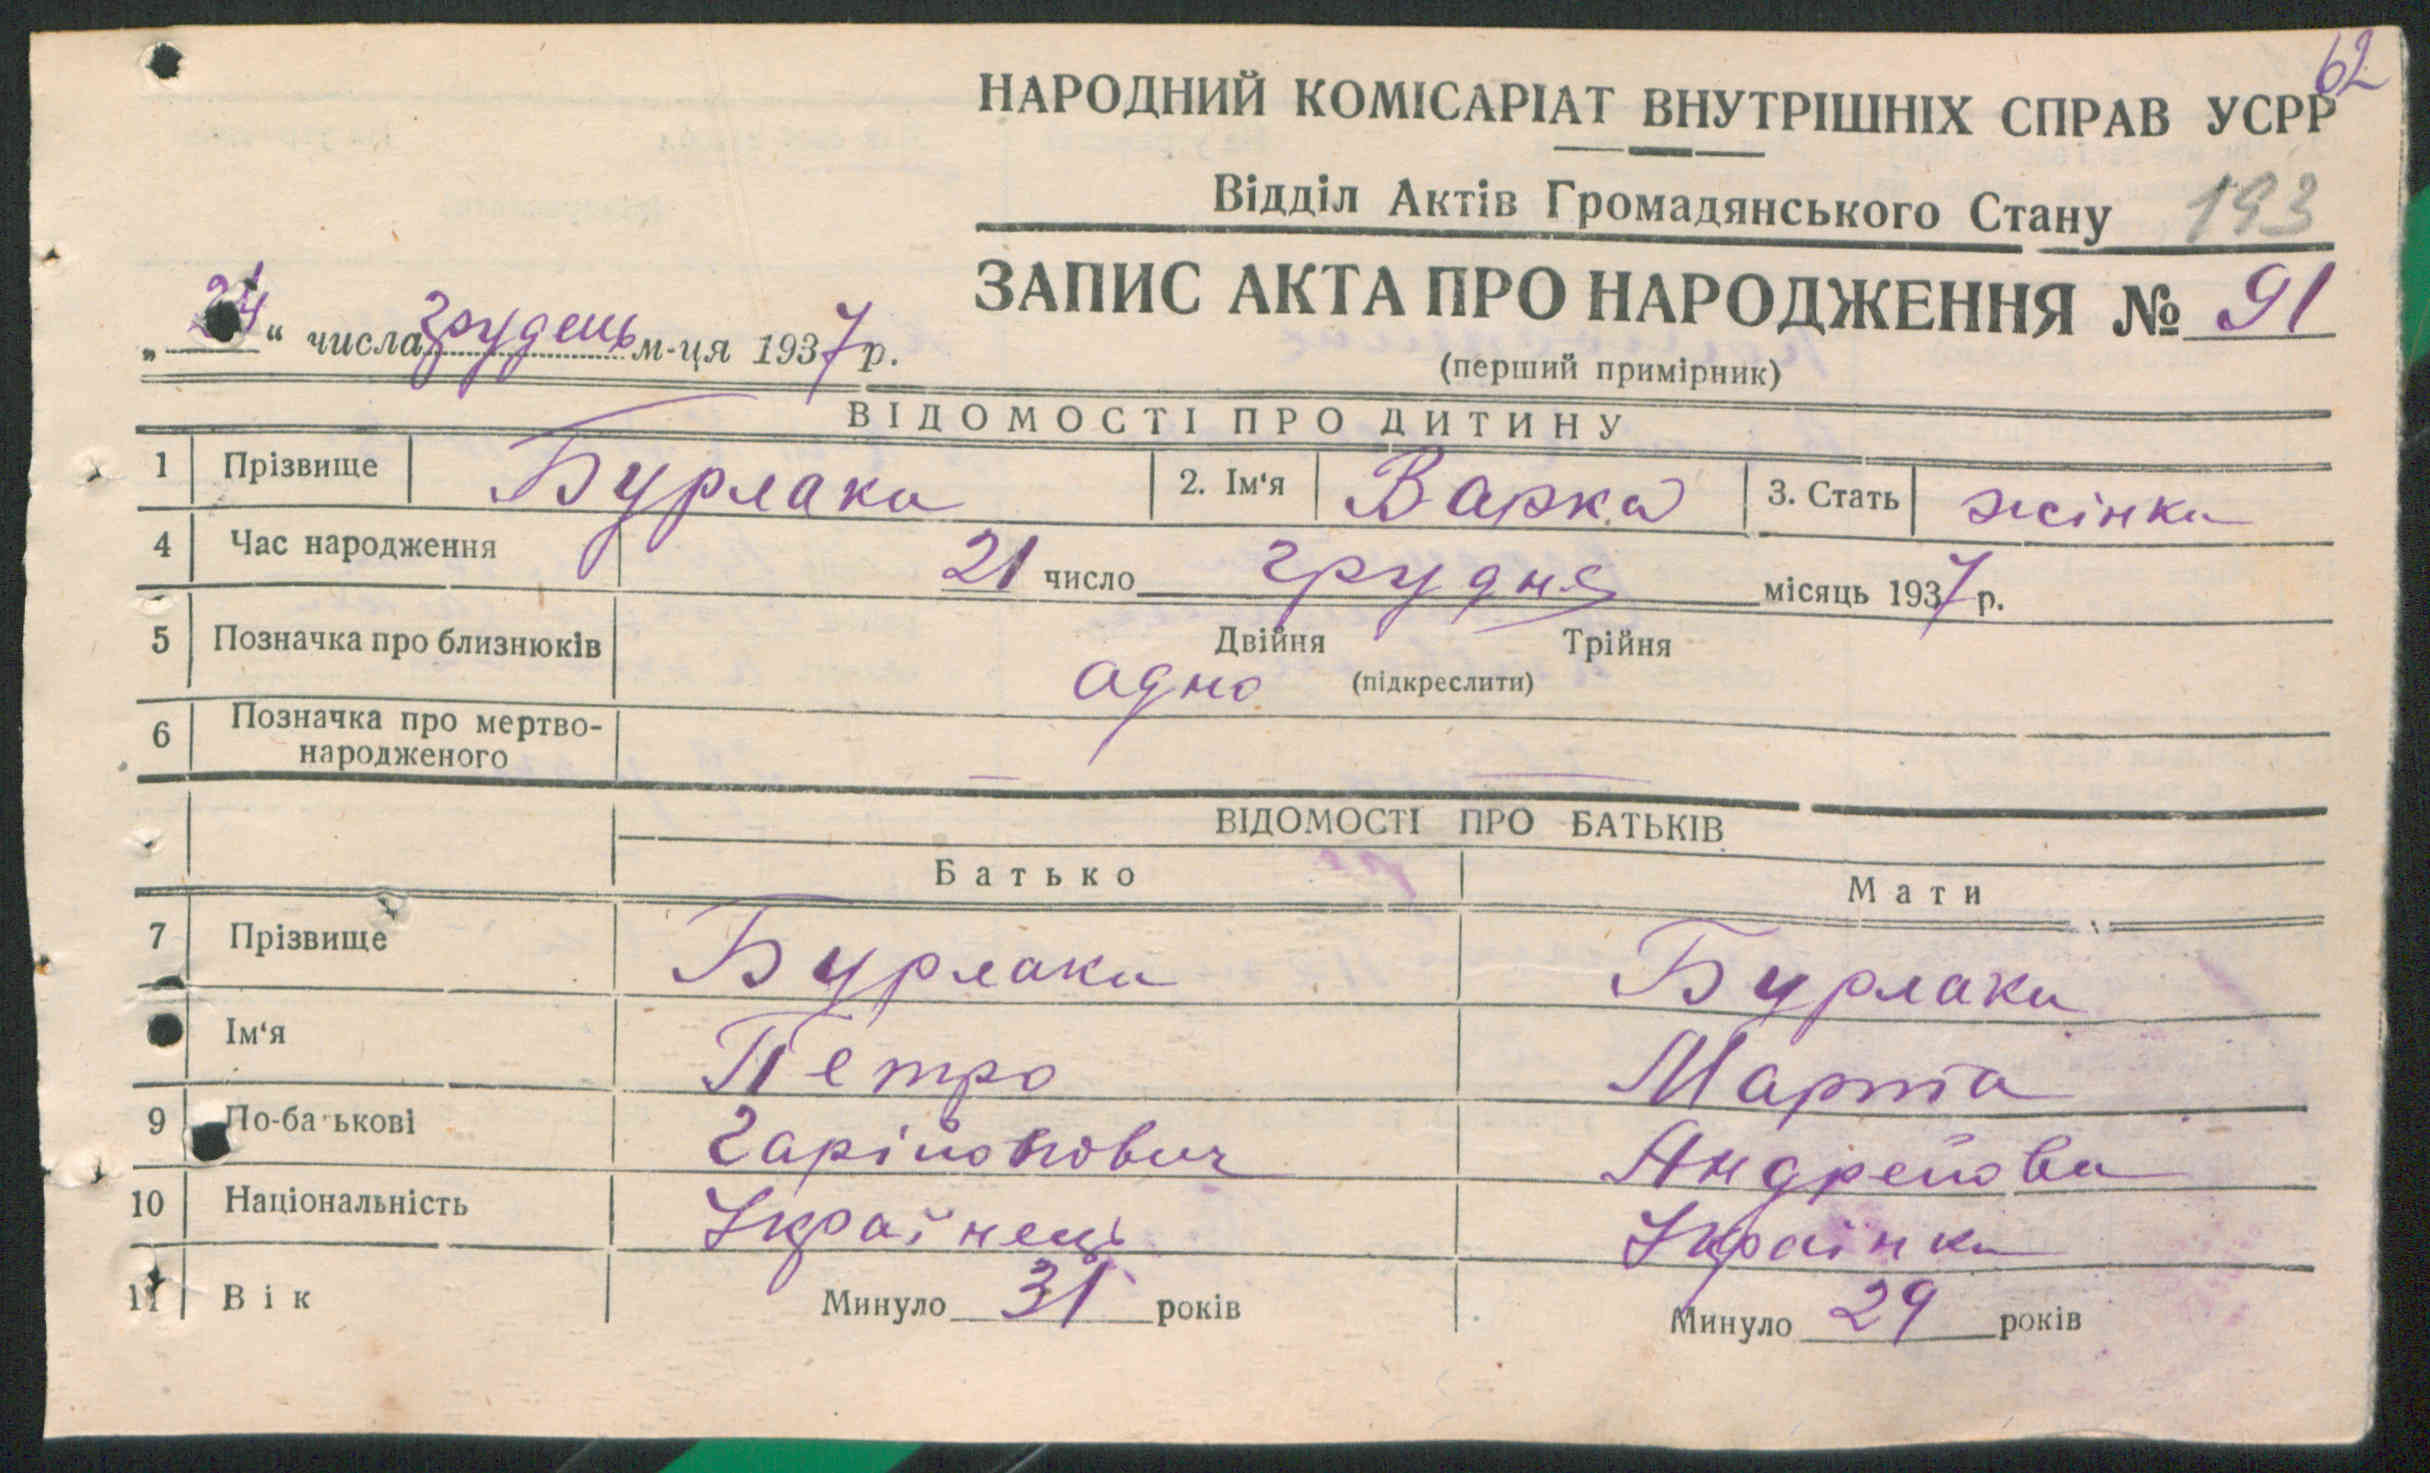 62
НАРОДНИЙ КОМІСАРІАТ ВНУТРІШНІХ СПРАВ УСРР
Відділ Актів Громадянського Стану 193
ЗАПИС АКТА ПРО НАРОДЖЕННЯ № 91
„24“ числа грудень м-ця 1937 р.
(перший примірник)
ВІДОМОСТІ ПРО ДИТИНУ
1 Прізвище Бурлака 2. Ім'я Варка 3. Стать жінка
4 Час народження 21 число грудня місяць 1937 р.
5 Позначка про близнюків Двійня Трійня
одно (підкреслити)
6 Позначка про мертво-
народженого — —
ВІДОМОСТІ ПРО БАТЬКІВ
Батько Мати
7 Прізвище Бурлака Бурлака
Ім'я Петро Марта
9 По-батькові Гарійонович Андрейова
10 Національність Українець Українка
11 Вік Минуло 31 років Минуло 29 років